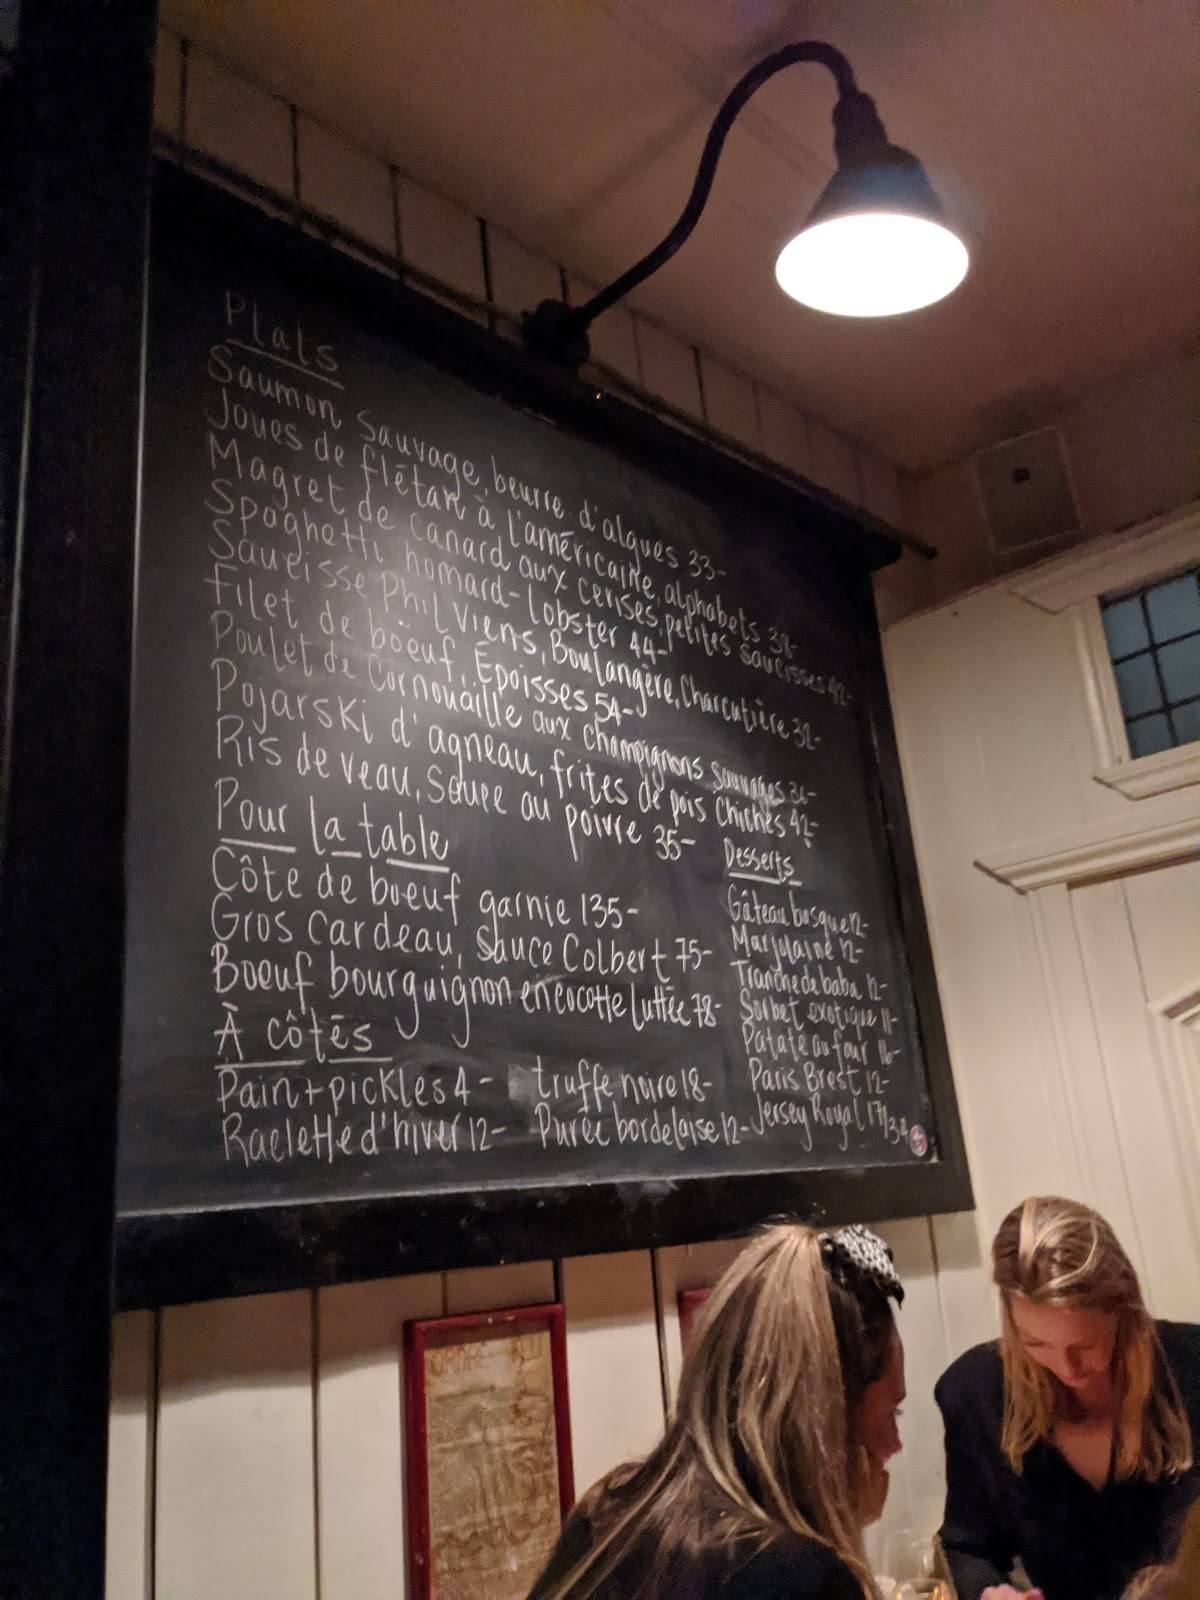 Plats
Saumon Sauvage, beurre d'algues 33-
Joues de flétan à l'américaine, alphabets 38-
Magret de canard aux cerises, petites saucisses 42-
Spaghetti homard-lobster 44-
Saucisse Phil Viens, Boulangère, Charcutière 32-
Filet de boeuf, Époisses 54-
Poulet de Cornouaille aux champignons sauvages 36-
Pojarski d'agneau, frites de pois chiches 42-
Ris de veau, Sauce au poivre 35-
Pour la table
Côte de boeuf garnie 135-
Gros Cardeau, Sauce Colbert 75-
Boeuf bourguignon en cocotte luttée 78-
À côtés
Pain + pickles 4-
Raclette d'hiver 12-
truffe noire 18-
Purée bordelaise 12-
Desserts
Gâteau basque 12-
Marjolaine 12-
Tranche de baba 12-
Sorbet exotique 11-
Patate au four 16-
Paris Brest 12-
Jersey Royal 17/34